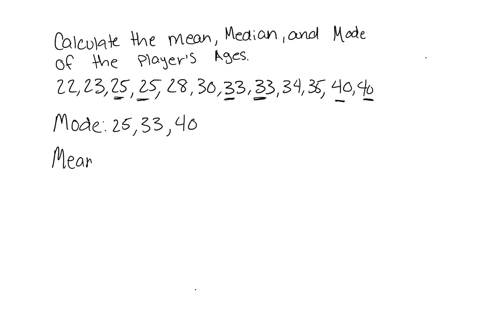 Calculate the mean, Median, and Mode
of the Player's Ages.
22,23,25,25,28,30,33,33,34,35,40,40
Mode: 25,33,40
Mean